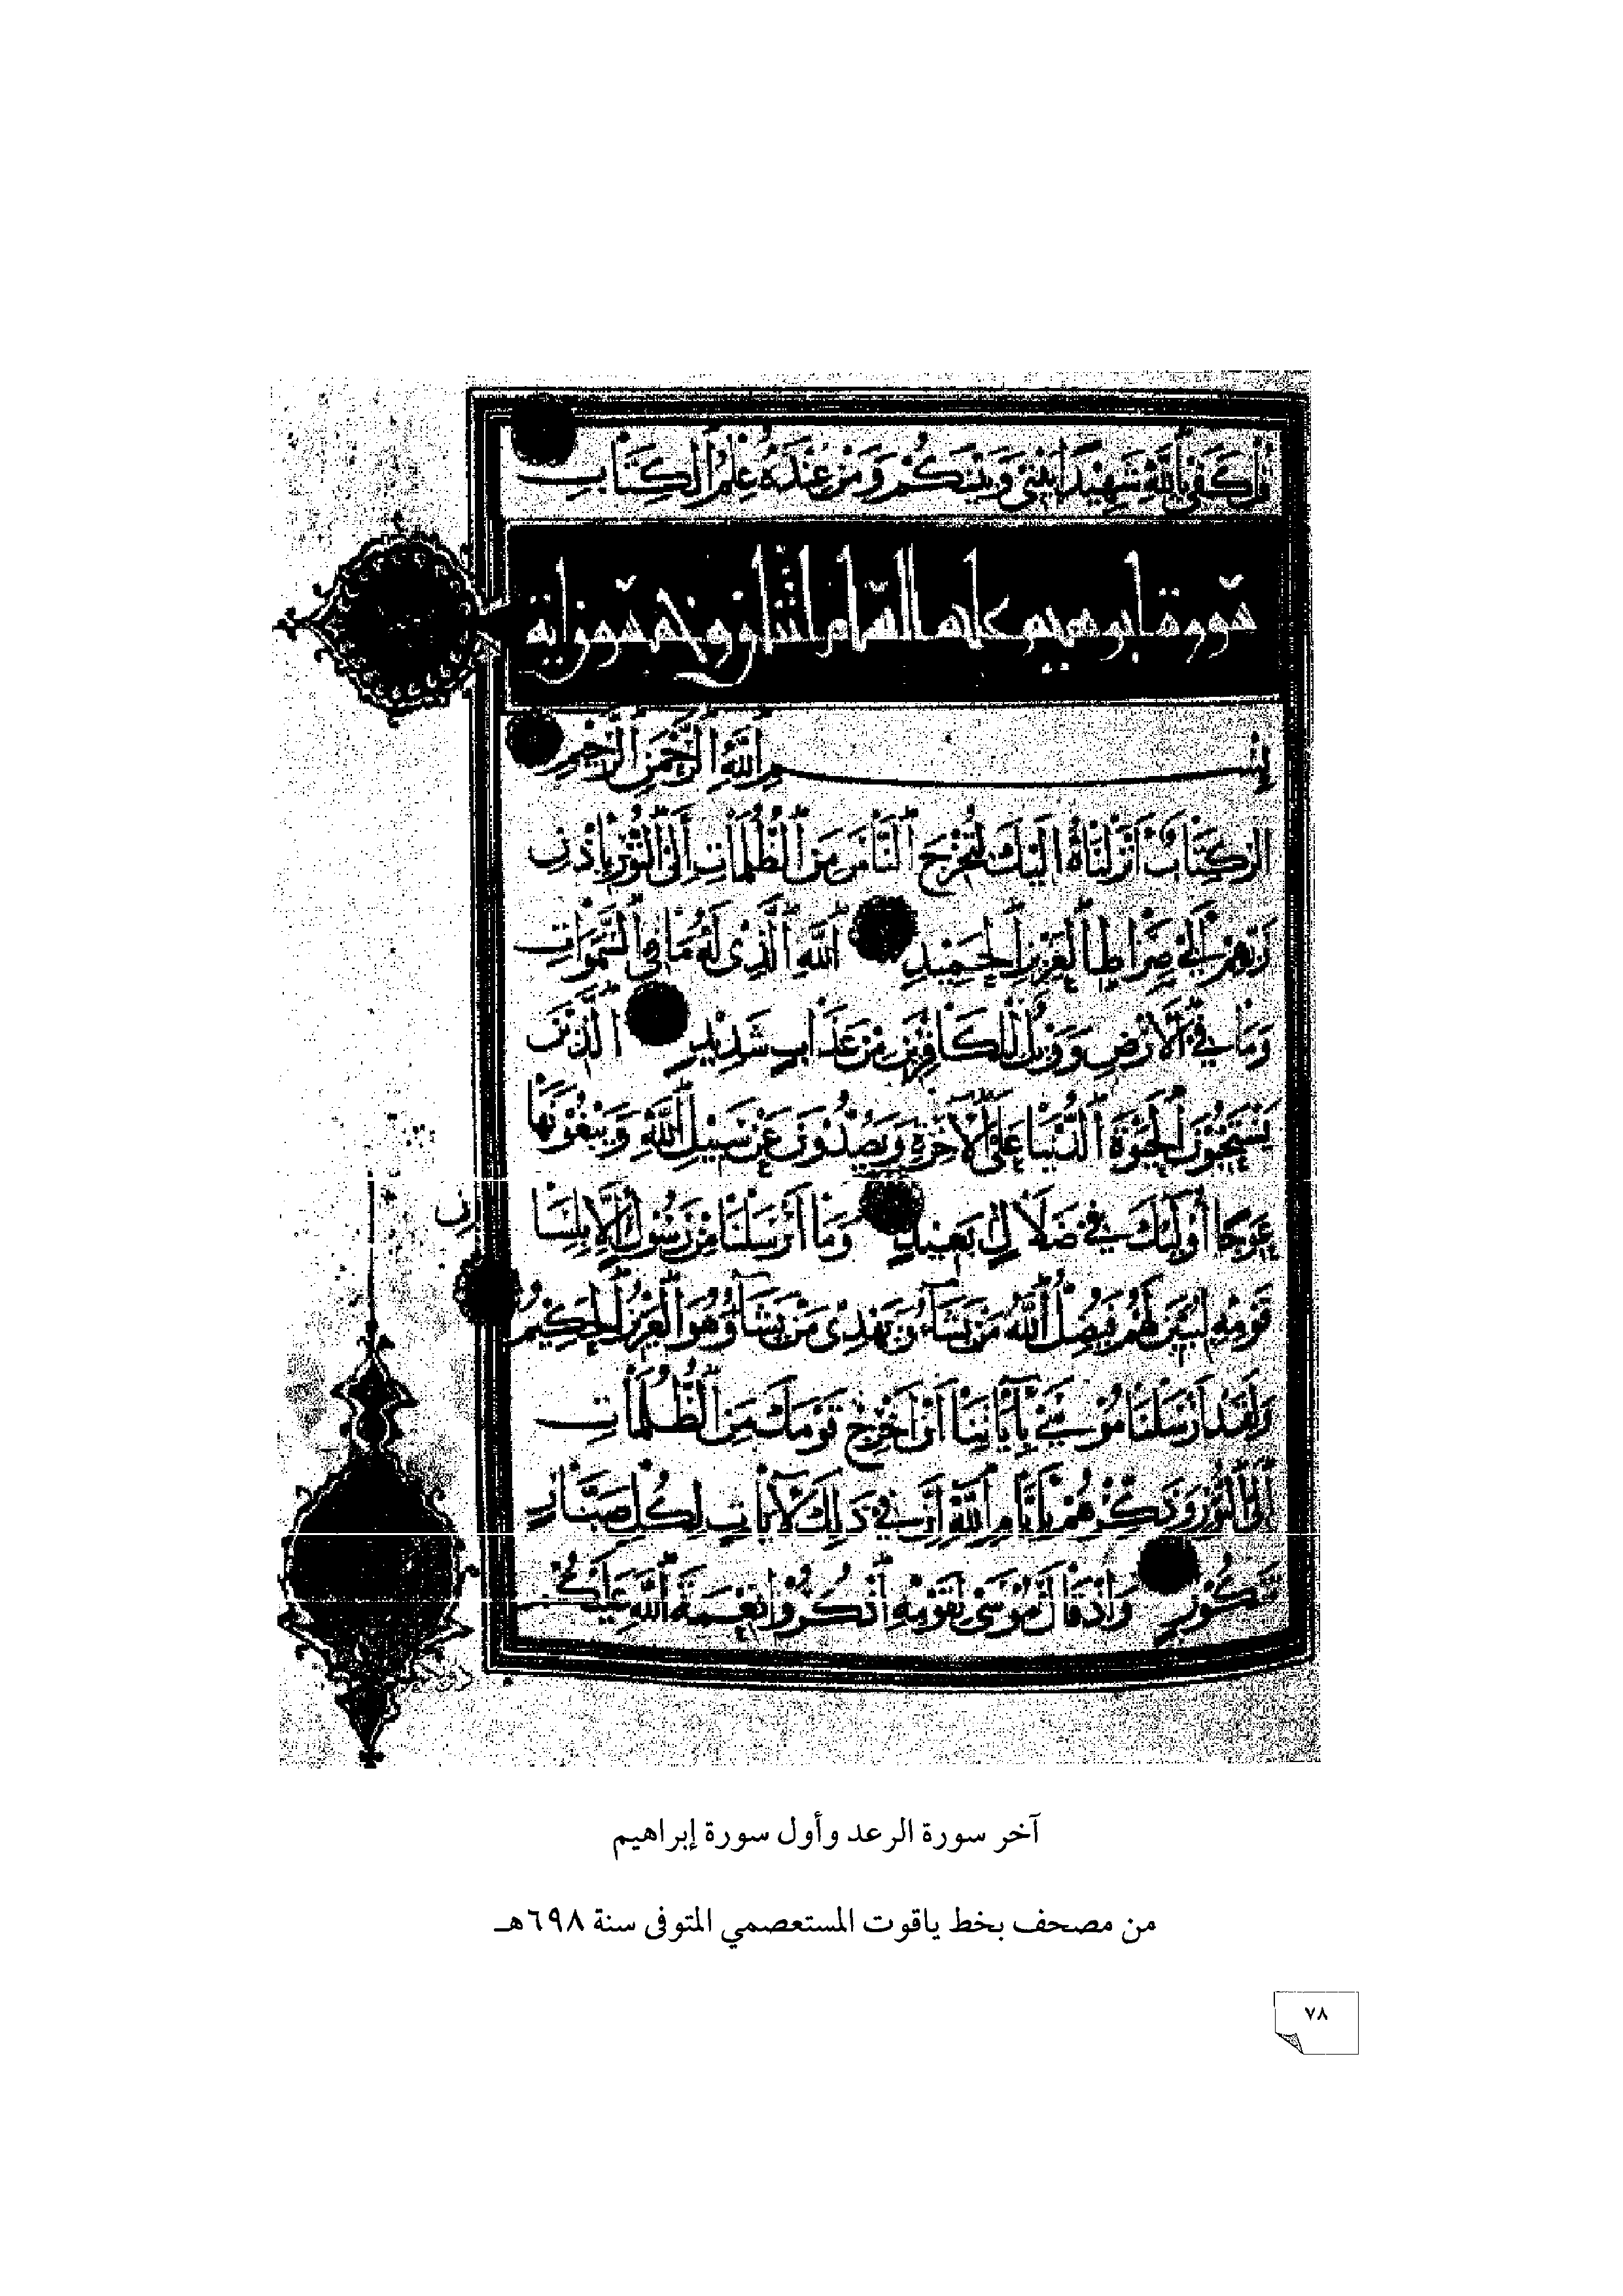 قل كفى بالله شهيدا بيني وبينكم ومن عنده علم الكتاب
سورة ابرهيم عليه السلام اثنان وخمسون اية
بسم الله الرحمن الرحيم
الر كتاب انزلناه اليك لتخرج الناس من الظلمات الى النور باذن
ربهم الى صراط العزيز الحميد الله الذي له ما في السموات
وما في الارض وويل للكافرين من عذاب شديد الذين
يستحبون الحيوة الدنيا على الآخرة ويصدون عن سبيل الله ويبغونها
عوجا أولئك في ضلال بعيد وما أرسلنا من رسول إلا بلسان
قومه ليبين لهم فيضل الله من يشاء ويهدي من يشاء وهو العزيز الحكيم
ولقد أرسلنا موسى بآياتنا ان اخرج قومك من الظلمات
الى النور وذكرهم بأيام الله إن في ذلك لآيات لكل صبار
شكور واذ قال موسى لقومه اذكروا نعمة الله عليكم
آخر سورة الرعد وأول سورة إبراهيم
من مصحف بخط ياقوت المستعصمي المتوفى سنة ٦٩٨هـ
٧٨